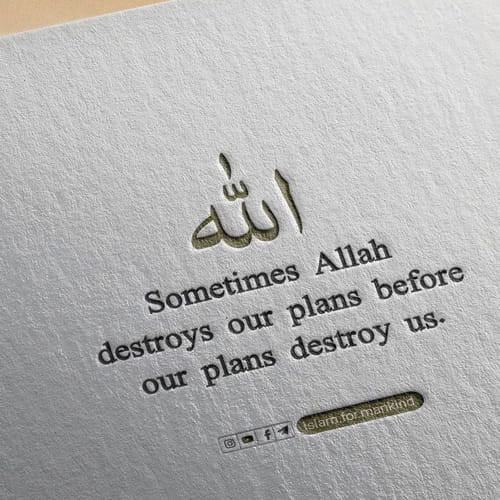 الله
Sometimes Allah
destroys our plans before
our plans destroy us.
islam.for.mankind